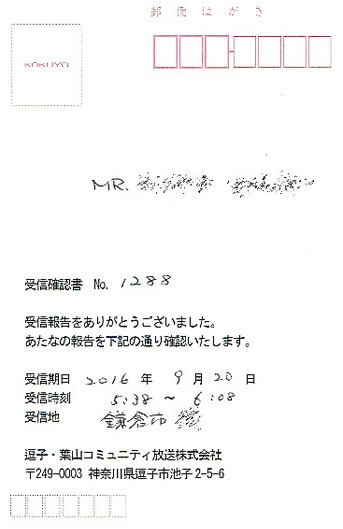 郵便はがき
KOKUYO
MR.
受信確認書 No. 1288
受信報告をありがとうございました。
あたなの報告を下記の通り確認いたします。
受信期日 2016 年 9 月 20 日
受信時刻 5:38 ～ 6:08
受信地 鎌倉市
逗子・葉山コミュニティ放送株式会社
〒249-0003 神奈川県逗子市池子2-5-6